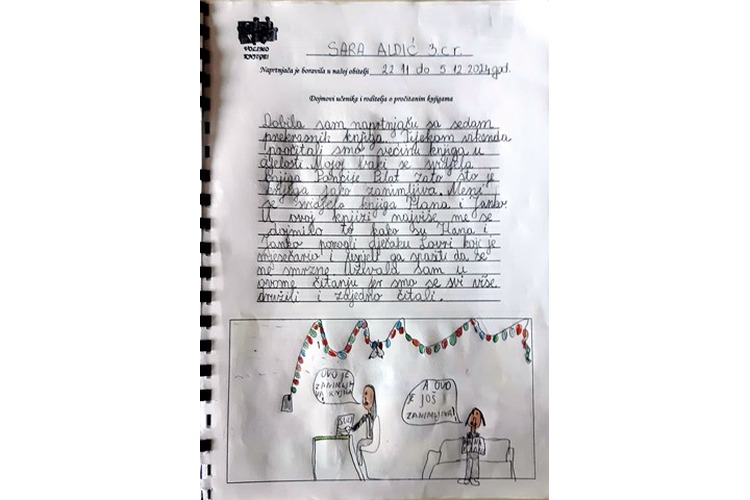 VOLIMO
KNJIGE!
SARA ALDIĆ 3.c r.
Naprtnjača je boravila u našoj obitelji 22 11 do 5 12 2024god.
Dojmovi učenika i roditelja o pročitanim knjigama
Dobila sam naprtnjaču sa sedam
prekrasnih knjiga. Tijekom vikenda
pročitali smo većinu knjiga u
cijelosti. Mojoj baki se svidjela
knjiga Poncije Pilat zato što je
knjiga jako zanimljiva. Meni
se svidjela knjiga Hana i Janko.
U ovoj knjizi najviše me se
dojmilo to kako su Hana i
Janko pomogli dječaku Lovri koji je
mjesečario i uspjeli ga spasiti da se
ne smrzne. Uživala sam u
ovome čitanju jer smo se svi više
družili i zajedno čitali.
OVO JE
ZANIMLJI
VA KNJIGA!
A OVO
JE JOŠ
ZANIMLJIVA!